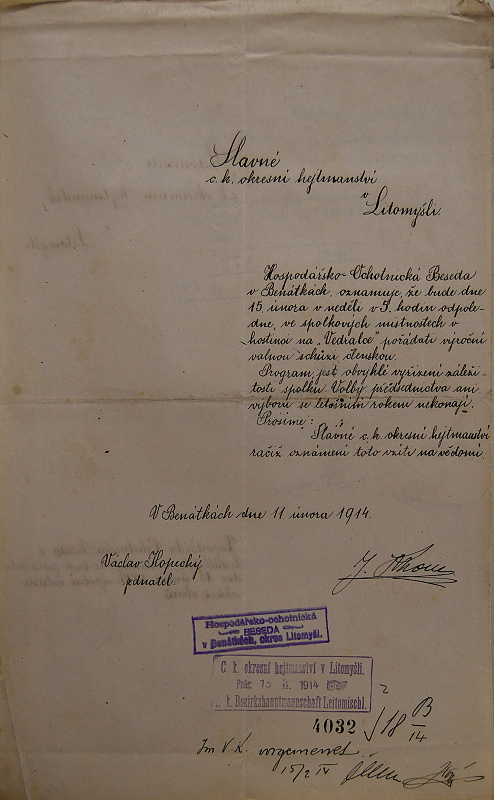 Slavné
c. k. okresní hejtmanství
v
Litomyšli.
Hospodářsko-Ochotnická Beseda
v Benátkách, oznamuje, že bude dne
15. února v neděli v 3. hodin odpole-
dne, ve spolkových místnostech v
hostinci na „Vedralce" pořádati výroční
valnou schůzi členskou.
Program, jest obvyklé vyřízení záleži-
tostí spolku. Volby předsednictva ani
výboru se letošním rokem nekonají.
Prosíme:
Slavné c. k. okresní hejtmanství
račiž oznámení toto vzíti na vědomí.
V Benátkách dne 11 února 1914.
Václav Kopecký
jednatel.
Hospodářsko-ochotnická
BESEDA
v Benátkách, okres Litomyšl.
C. k. okresní hejtmanství v Litomyšli.
Präs: II. 1914
k. k. Bezirkshauptmannschaft Leitomischl.
4032 / 18 B/14
Im V. K. vorgemerkt
15/2 14